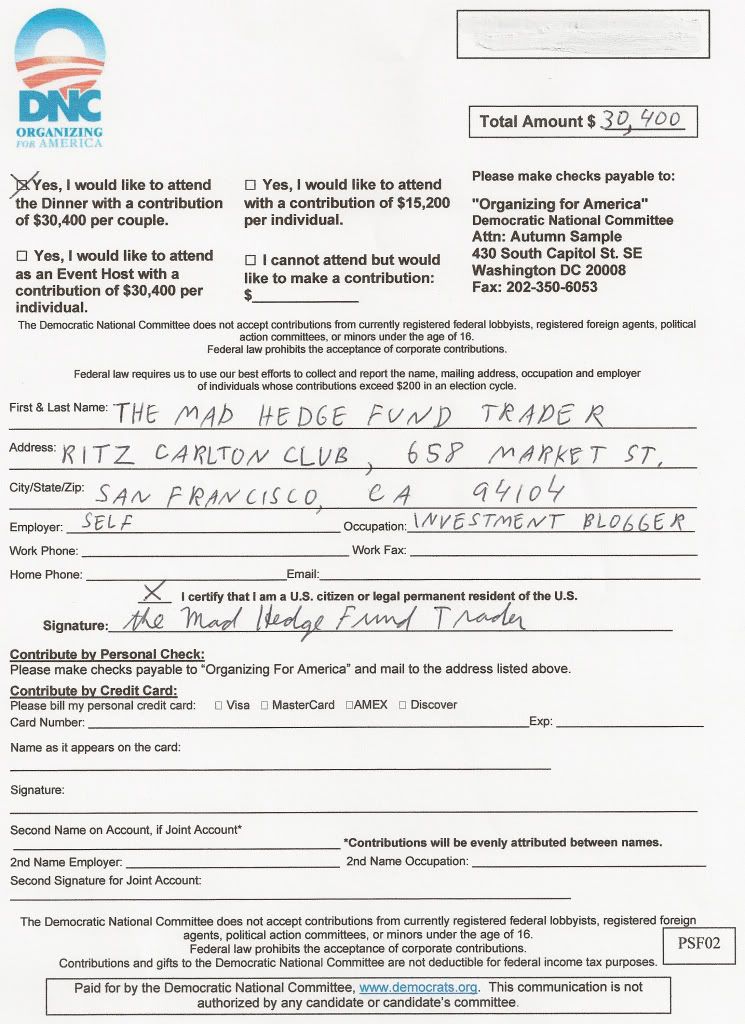 DNC
ORGANIZING
FOR AMERICA
Total Amount $ 30,400
☒ Yes, I would like to attend
the Dinner with a contribution
of $30,400 per couple.
☐ Yes, I would like to attend
with a contribution of $15,200
per individual.
Please make checks payable to:
"Organizing for America"
Democratic National Committee
Attn: Autumn Sample
430 South Capitol St. SE
Washington DC 20008
Fax: 202-350-6053
☐ Yes, I would like to attend
as an Event Host with a
contribution of $30,400 per
individual.
☐ I cannot attend but would
like to make a contribution:
$
The Democratic National Committee does not accept contributions from currently registered federal lobbyists, registered foreign agents, political
action committees, or minors under the age of 16.
Federal law prohibits the acceptance of corporate contributions.
Federal law requires us to use our best efforts to collect and report the name, mailing address, occupation and employer
of individuals whose contributions exceed $200 in an election cycle.
First & Last Name: THE MAD HEDGE FUND TRADER
Address: RITZ CARLTON CLUB, 658 MARKET ST.
City/State/Zip: SAN FRANCISCO, CA 94104
Employer: SELF Occupation: INVESTMENT BLOGGER
Work Phone: Work Fax:
Home Phone: Email:
X I certify that I am a U.S. citizen or legal permanent resident of the U.S.
Signature: the Mad Hedge Fund Trader
Contribute by Personal Check:
Please make checks payable to “Organizing For America” and mail to the address listed above.
Contribute by Credit Card:
Please bill my personal credit card: ☐ Visa ☐ MasterCard ☐AMEX ☐ Discover
Card Number: Exp:
Name as it appears on the card:
Signature:
Second Name on Account, if Joint Account*
*Contributions will be evenly attributed between names.
2nd Name Employer: 2nd Name Occupation:
Second Signature for Joint Account:
The Democratic National Committee does not accept contributions from currently registered federal lobbyists, registered foreign
agents, political action committees, or minors under the age of 16.
Federal law prohibits the acceptance of corporate contributions.
Contributions and gifts to the Democratic National Committee are not deductible for federal income tax purposes.
PSF02
Paid for by the Democratic National Committee, www.democrats.org. This communication is not
authorized by any candidate or candidate's committee.